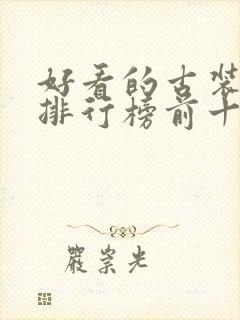 好看的古装
排行榜前十
严崇光